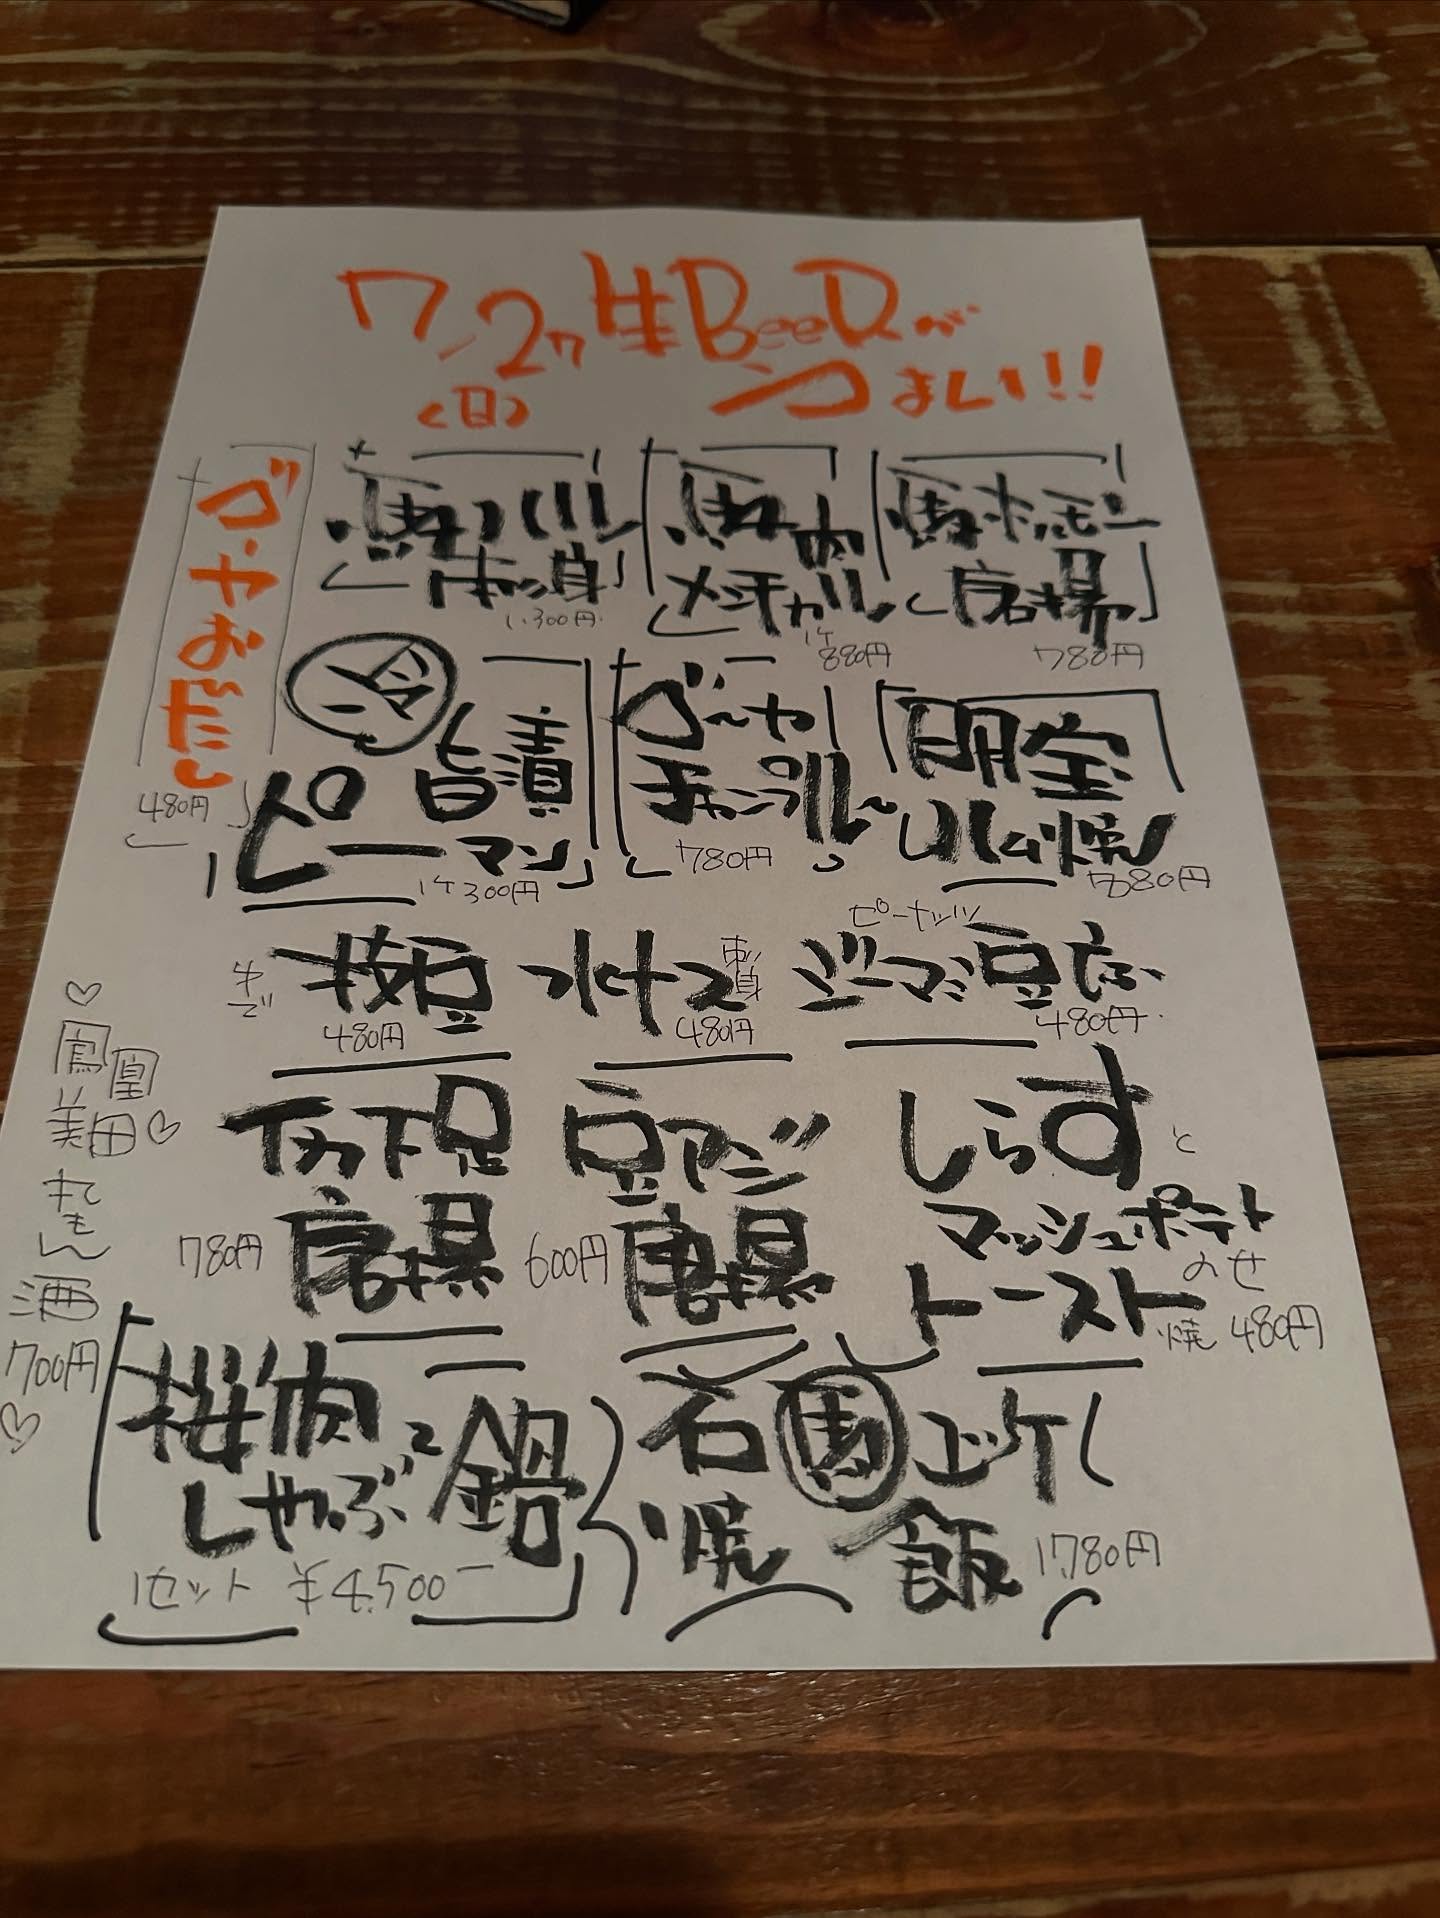 7/27 生BeeRが
(日) うまい!!
ゴーヤおだし
480円
馬ハツ
刺身
1,300円
馬肉
メンチカツ
1ケ
880円
馬ホルモン
唐揚
780円
冷
旨漬
ピーマン
1ケ300円
ゴーヤ
チャンプルー
780円
明宝
ハム焼
780円
ゆで
枝豆
480円
水ナス
刺身
480円
ピーナッツ
ジーマミ豆腐
480円
イカ下足
唐揚
780円
豆アジ
唐揚
600円
しらすと
マッシュポテト
のせ
トースト
焼 480円
鳳凰
美田
れもん
酒
700円
桜肉
しゃぶしゃぶ鍋
1セット ¥4,500ー
石焼
馬
飯 1,780円